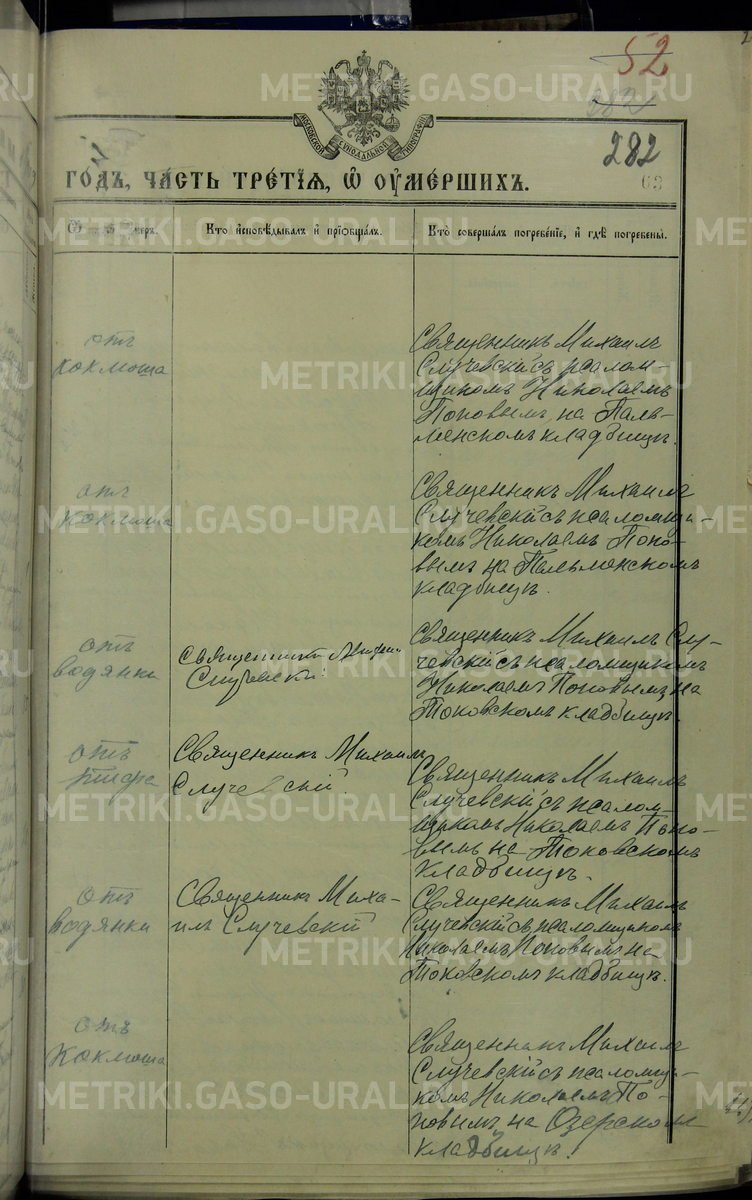 52
282
282
63
МОСКОВСКОЙ СѴНОДАЛЬНОЙ ТИПОГРАФІИ
ГОДЪ, ЧАСТЬ ТРЕТІЯ, Ѿ ОУМЕРШИХЪ.
Кто исповѣдывалъ и пріобщалъ.
Кто совершалъ погребеніе, и гдѣ погребены.
отъ
коклюша
Священникъ Михаилъ
Случевскій съ псалом-
щикомъ Николаемъ
Поповымъ на Паль-
менскомъ кладбищѣ.
отъ
коклюша
Священникъ Михаилъ
Случевскій съ псаломщи-
комъ Николаемъ Попо-
вымъ на Пальменскомъ
кладбищѣ.
отъ
водянки
Священникъ Михаил
Случевскій
Священникъ Михаилъ Слу-
чевскій съ псаломщикомъ
Николаемъ Поповымъ на
Токовскомъ кладбищѣ.
отъ
тифа
Священникъ Михаилъ
Случевскій.
Священникъ Михаилъ
Случевскій съ псалом-
щикомъ Николаемъ Попо-
вымъ на Токовскомъ
кладбищѣ.
отъ
водянки
Священникъ Миха-
илъ Случевскій
Священникъ Михаилъ
Случевскій съ псаломщикомъ
Николаемъ Поповымъ на
Токовскомъ кладбищѣ.
отъ
коклюша
Священникъ Михаилъ
Случевскій съ псаломщи-
комъ Николаемъ По-
повымъ на Озерскомъ
кладбищѣ.
METRIKI.GASO-URAL.RU